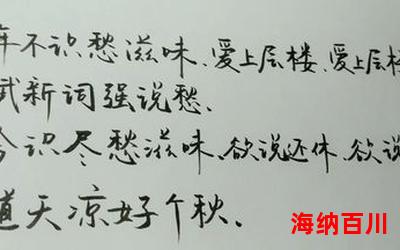 年不识愁滋味、爱上层楼、爱上层楼
试新词强说愁、
今识尽愁滋味、欲说还休、欲说
道天凉好个秋、
海纳百川